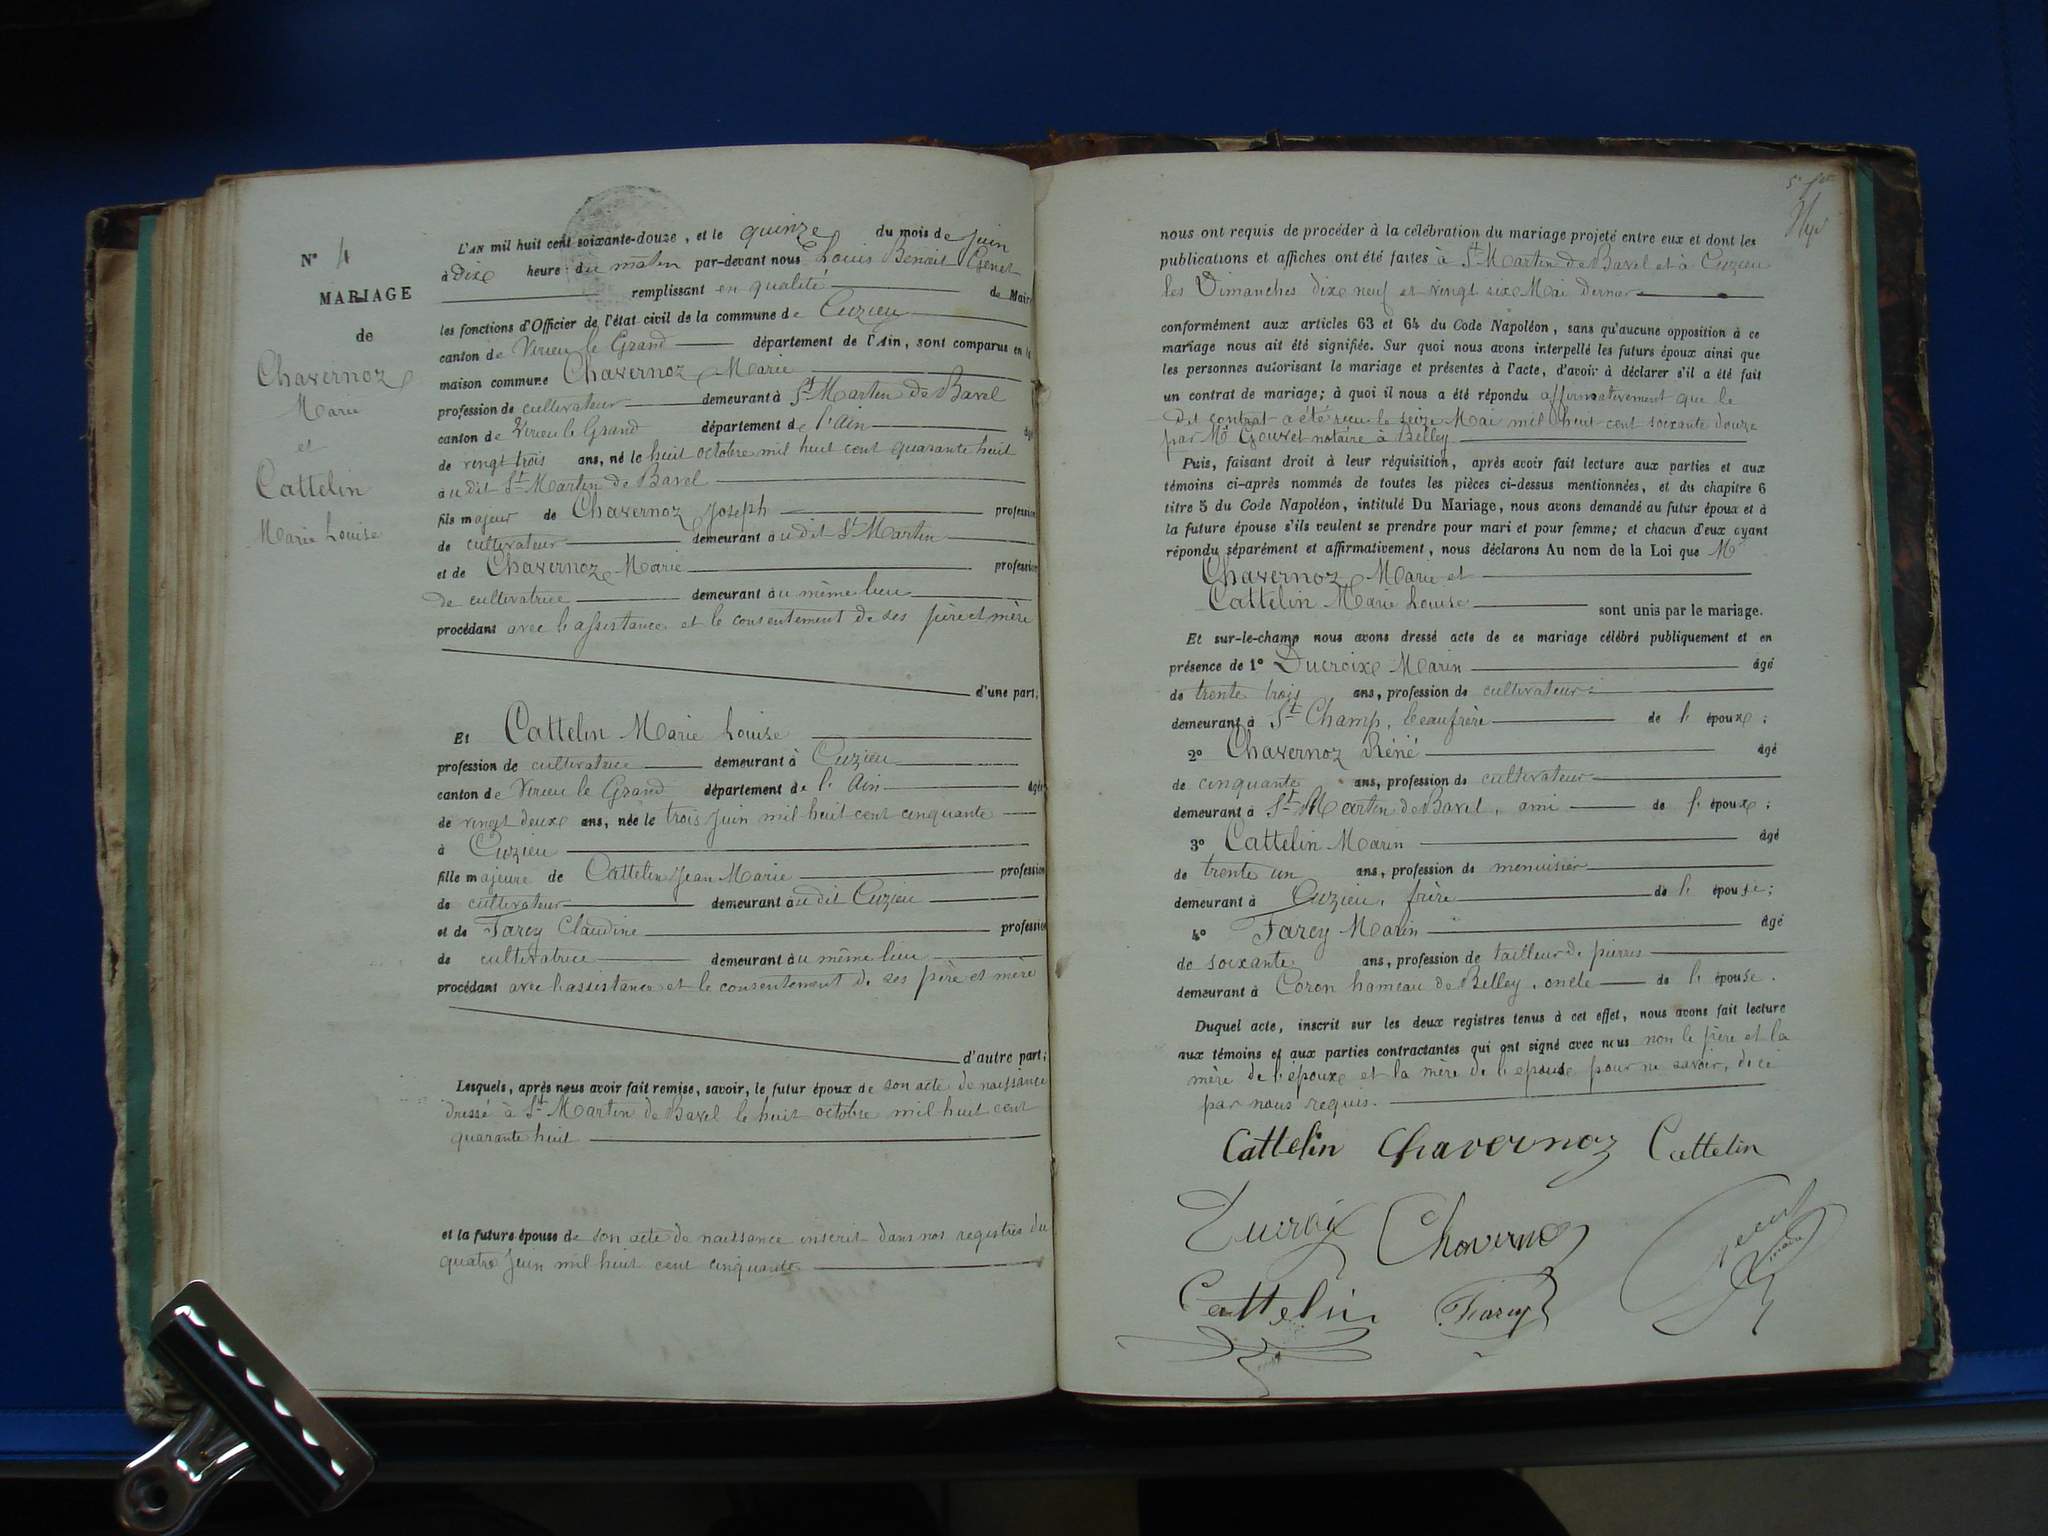 N° 4
MARIAGE
de
Chavernoz
Marie
et
Cattelin
Marie Louise
L'AN mil huit cent soixante-douze, et le quinze du mois de juin
à dix heure du matin par-devant nous Louis Benoit Genet
remplissant en qualité de Maire
les fonctions d'Officier de l'état civil de la commune de Cuzieu
canton de Virieu le Grand département de l'Ain, sont comparus en la
maison commune Chavernoz Marie
profession de cultivateur demeurant à St Martin de Bavel
canton de Virieu le Grand département de l'Ain âgé
de vingt trois ans, né le huit octobre mil huit cent quarante huit
au dit St Martin de Bavel
fils majeur de Chavernoz Joseph profession
de cultivateur demeurant au dit St Martin
et de Chavernoz Marie profession
de cultivatrice demeurant au même lieu
procédant avec l'assistance et le consentement de ses père et mère
d'une part;
Et Cattelin Marie Louise
profession de cultivatrice demeurant à Cuzieu
canton de Virieu le Grand département de l'Ain âgée
de vingt deux ans, née le trois juin mil huit cent cinquante
à Cuzieu
fille majeure de Cattelin Jean Marie profession
de cultivateur demeurant au dit Cuzieu
et de Farcy Claudine profession
de cultivatrice demeurant au même lieu
procédant avec l'assistance et le consentement de ses père et mère
d'autre part;
Lesquels, après nous avoir fait remise, savoir, le futur époux de son acte de naissance
dressé à St Martin de Bavel le huit octobre mil huit cent
quarante huit
et la future épouse de son acte de naissance inscrit dans nos registres du
quatre Juin mil huit cent cinquante
nous ont requis de procéder à la célébration du mariage projeté entre eux et dont les
publications et affiches ont été faites à St Martin de Bavel et à Cuzieu
les Dimanches dix neuf et vingt six Mai dernier
conformément aux articles 63 et 64 du Code Napoléon, sans qu'aucune opposition à ce
mariage nous ait été signifiée. Sur quoi nous avons interpellé les futurs époux ainsi que
les personnes autorisant le mariage et présentes à l'acte, d'avoir à déclarer s'il a été fait
un contrat de mariage; à quoi il nous a été répondu affirmativement que le
dit contrat a été reçu le seize Mai mil huit cent soixante douze
par Me Gouvet notaire à Belley
Puis, faisant droit à leur réquisition, après avoir fait lecture aux parties et aux
témoins ci-après nommés de toutes les pièces ci-dessus mentionnées, et du chapitre 6
titre 5 du Code Napoléon, intitulé Du Mariage, nous avons demandé au futur époux et à
la future épouse s'ils veulent se prendre pour mari et pour femme; et chacun d'eux ayant
répondu séparément et affirmativement, nous déclarons Au nom de la Loi que Mr
Chavernoz Marie et
Cattelin Marie Louise sont unis par le mariage.
Et sur-le-champ nous avons dressé acte de ce mariage célébré publiquement et en
présence de 1° Ducroix Marin âgé
de trente trois ans, profession de cultivateur
demeurant à St Champ, beaufrère de l'époux;
2° Chavernoz Réné âgé
de cinquante ans, profession de cultivateur
demeurant à St Martin de Bavel, ami de l'époux;
3° Cattelin Marin âgé
de trente un ans, profession de menuisier
demeurant à Cuzieu, frère de l'épouse;
4° Farcy Marin âgé
de soixante ans, profession de tailleur de pierres
demeurant à Coron hameau de Belley, oncle de l'épouse.
Duquel acte, inscrit sur les deux registres tenus à cet effet, nous avons fait lecture
aux témoins et aux parties contractantes qui ont signé avec nous non le père et la
mère de l'époux et la mère de l'épouse pour ne savoir, de ce
par nous requis.
Cattelin Chavernoz Cattelin
Ducroix Chavernoz
Genet
maire
Cattelin Farcy